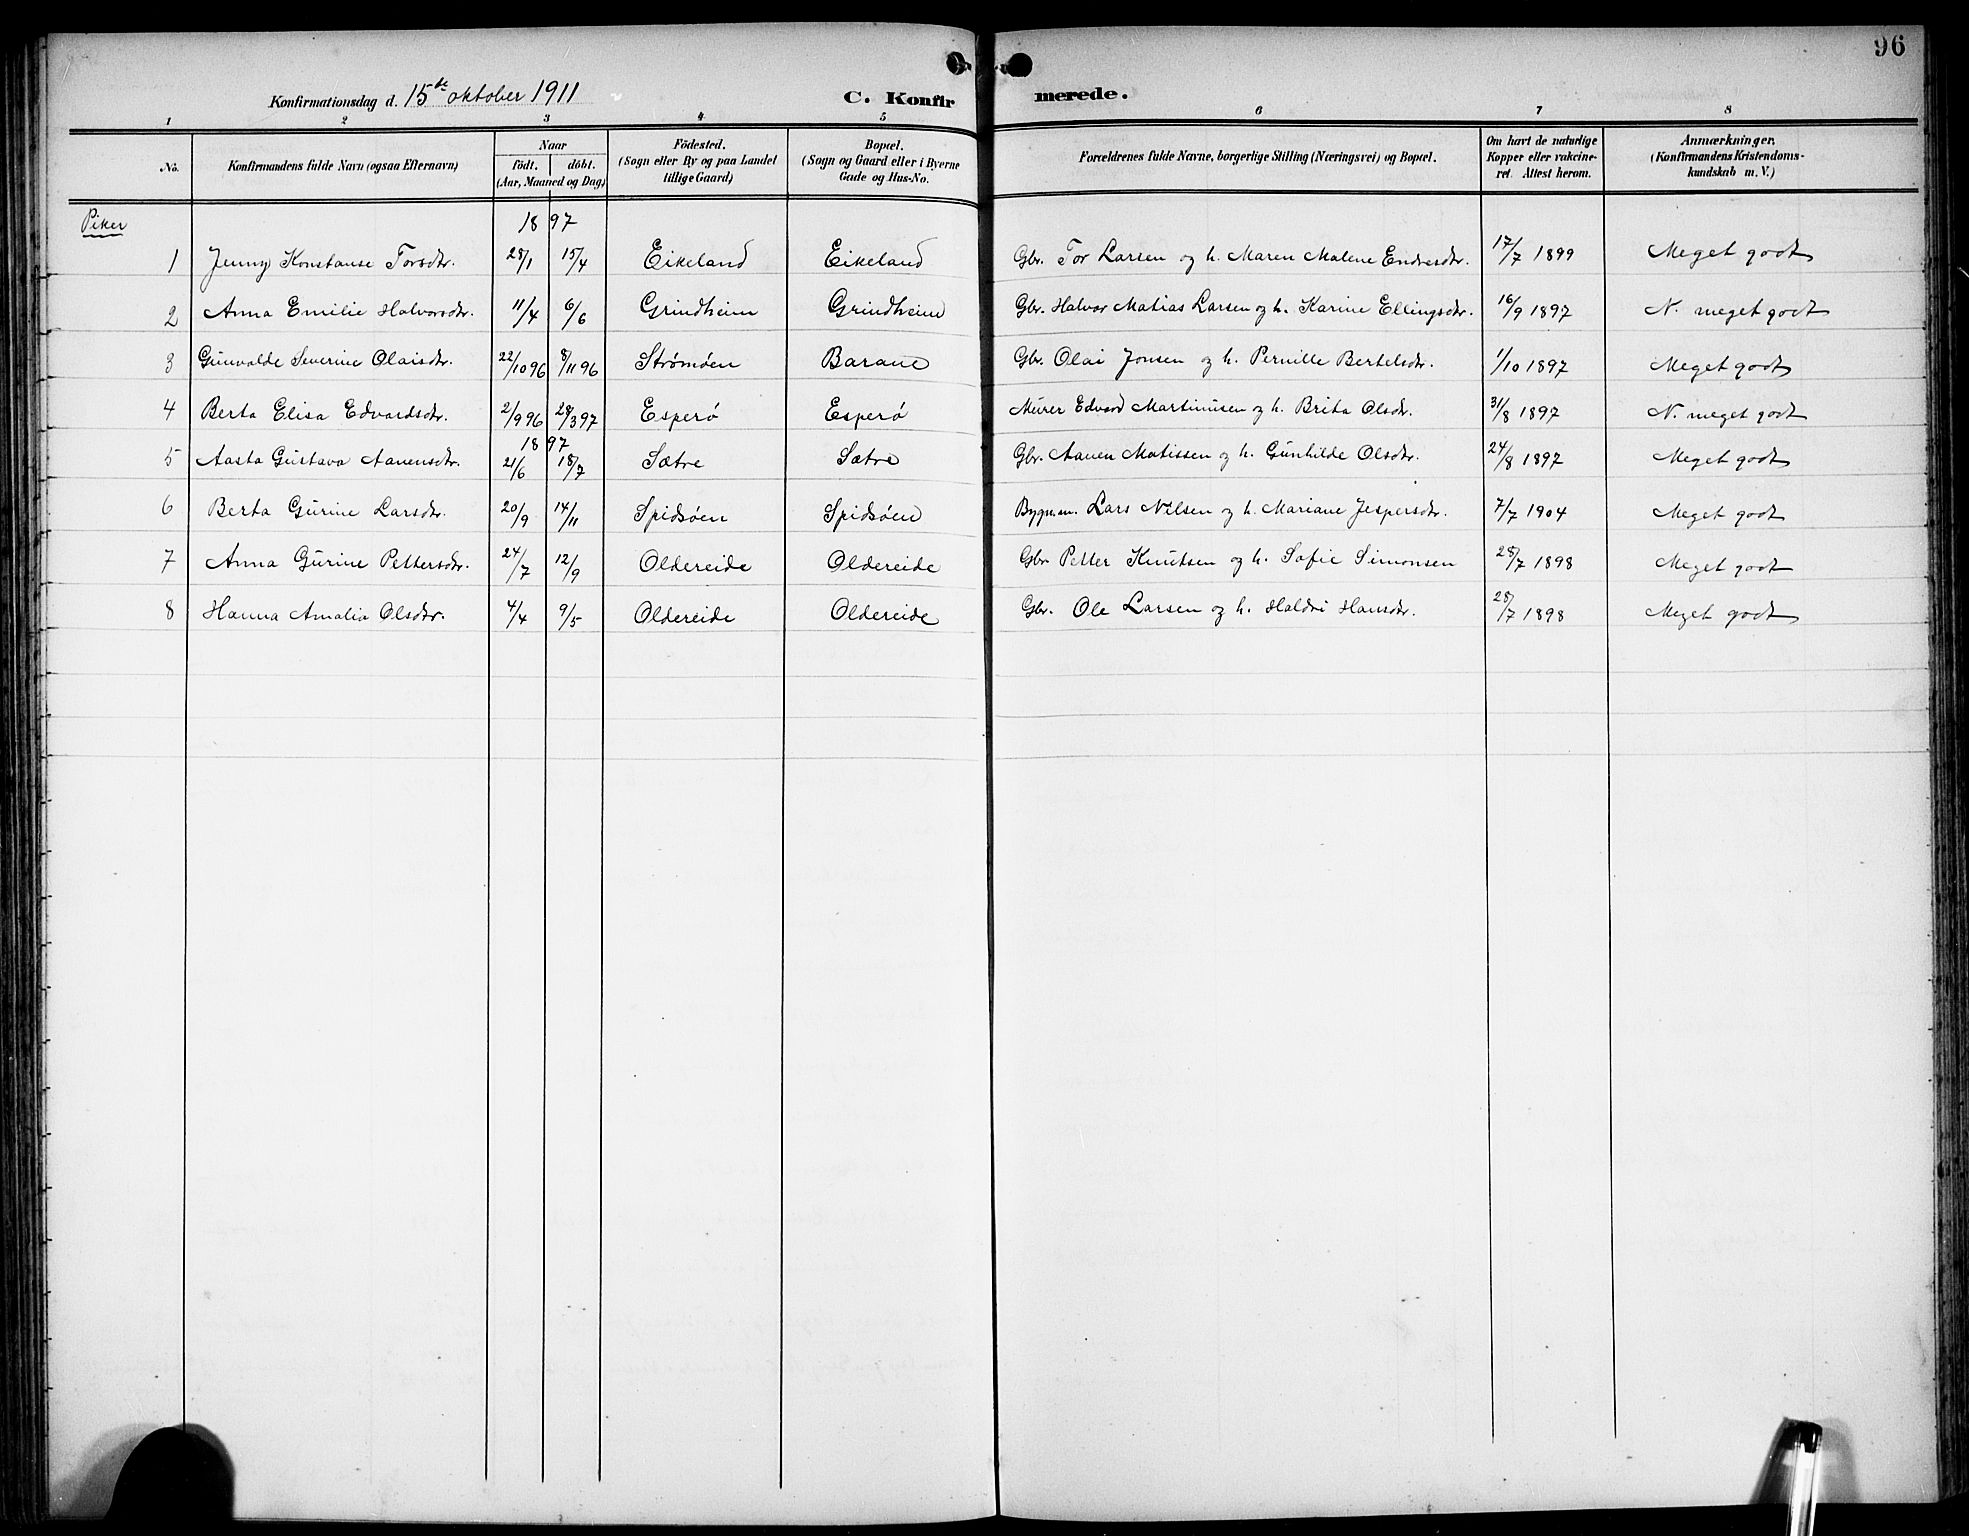 96
Konfirmationsdag d. 15de oktober 1911 C. Konfirmerede.
1 2 3 4 5 6 7 8
No. Konfirmandens fulde Navn (ogsaa Efternavn) Naar født. døbt. (Aar, Maaned og Dag) Födested. (Sogn eller By og paa Landet tillige Gaard) Bopæl. (Sogn og Gaard eller i Byerne Gade og Hus-No. Forældrenes fulde Navne, borgerlige Stilling (Næringsvei) og Bopæl. Om havt de naturlige Kopper eller vakcineret. Attest herom. Anmærkninger. (Konfirmandens Kristendomskundskab m. V.)
Piker 1897
1 Jenny Konstanse Torsdtr. 28/1 15/4 Eikeland Eikeland Gbr. Tor Larsen og h. Maren Malene Endresdtr. 17/7 1899 Meget godt
2 Anna Emilie Halvorsdtr. 11/4 6/6 Grindheim Grindheim Gbr. Halvor Matias Larsen og h. Karine Ellingsdtr. 16/9 1897 N. meget godt
3 Gunvalde Severine Olaisdtr. 22/10 96 8/11 96 Strømøen Barane Gbr. Olai Jonsen og h. Pernille Bertelsdtr. 1/10 1897 Meget godt
4 Berta Elisa Edvardsdtr. 2/9 96 28/3 97 Esperø Esperø Murer Edvard Martinusen og h. Brita Olsdtr. 31/8 1897 N. meget godt
1897
5 Aasta Gustava Aanensdtr. 21/6 18/7 Sætre Sætre Gbr. Aanen Matissen og h. Gunhilde Olsdtr. 24/8 1897 Meget godt
6 Berta Gurine Larsdtr. 20/9 14/11 Spidsøen Spidsøen Bygmm. Lars Nilsen og h. Mariane Jespersdtr. 7/7 1904 Meget godt
7 Anna Gurine Pettersdtr. 24/7 12/9 Oldereide Oldereide Gbr Petter Knutsen og h. Sofie Simonsen 28/7 1898 Meget godt
8 Hanna Amalia Olsdtr. 4/4 9/5 Oldereide Oldereide Gbr. Ole Larsen og h. Haldri Hansdtr. 28/7 1898 Meget godt